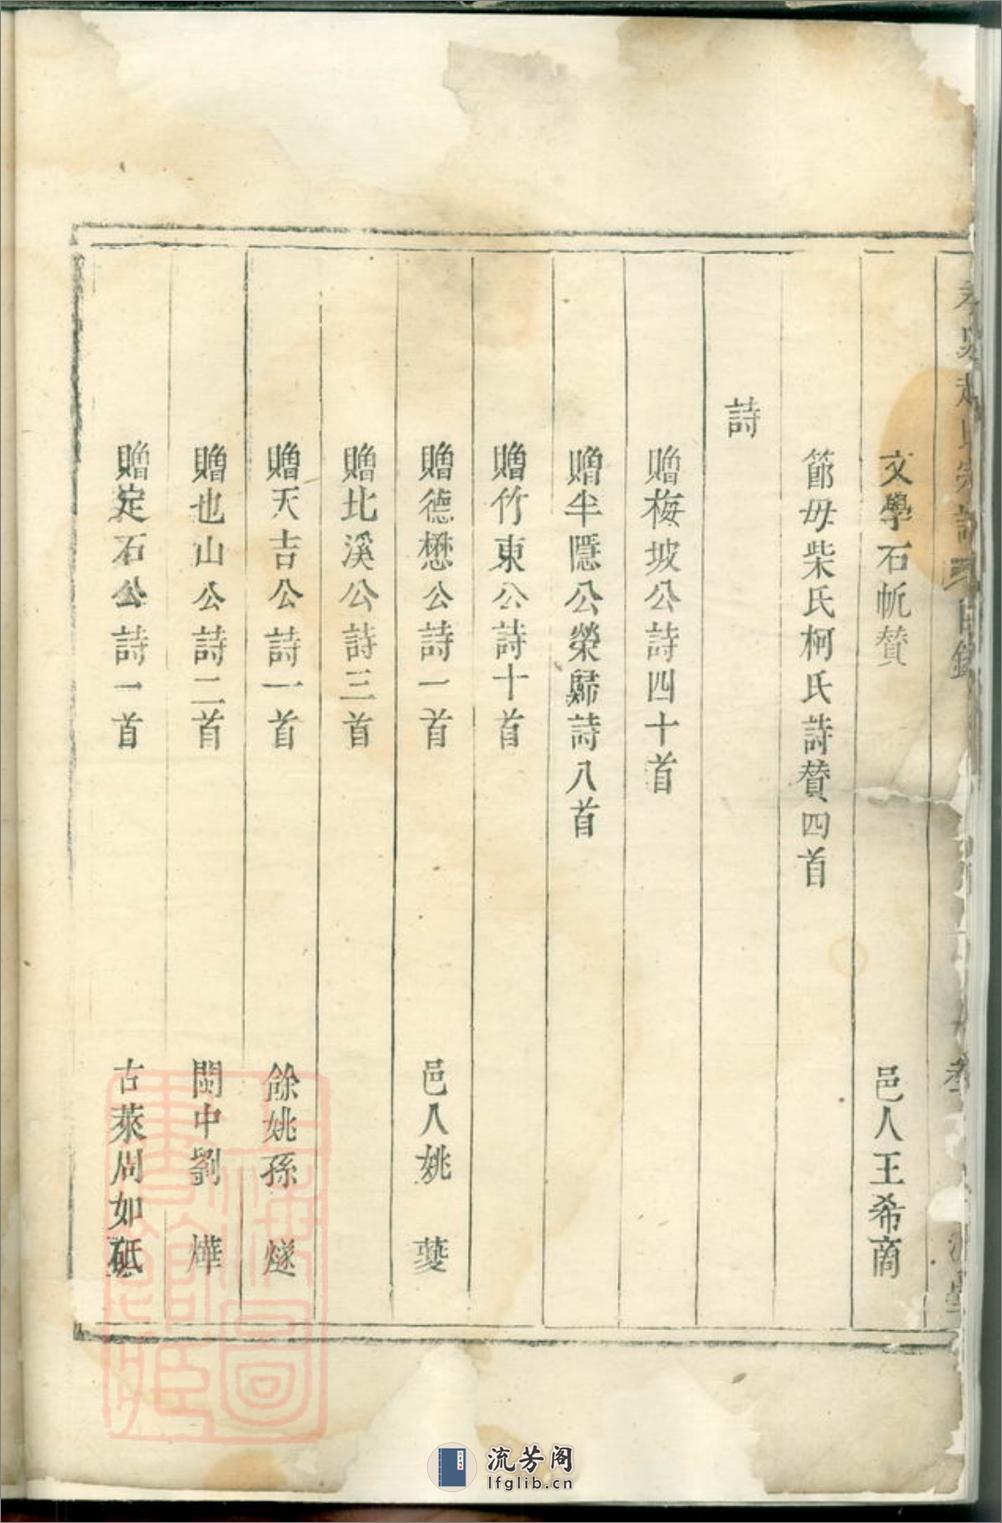 文學石帆贊　邑人王希商
節母柴氏柯氏詩贊四首
詩
贈梅坡公詩四十首
贈半隱公榮歸詩八首
贈竹東公詩十首
贈德懋公詩一首　邑人姚　夔
贈北溪公詩三首
贈天吉公詩一首　餘姚孫　燧
贈也山公詩二首　閩中劉　燁
贈定石公詩一首　古萊周如砥
上海圖書館藏
流芳阁
lfglib.cn